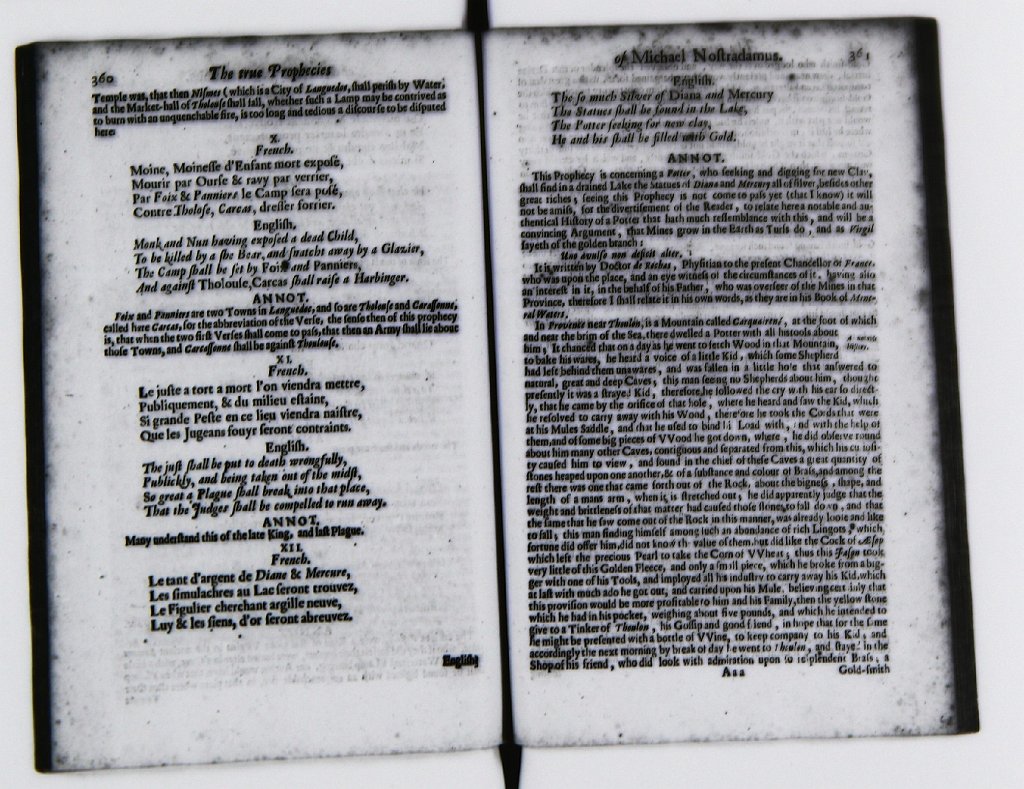 360
The true Prophecies
Temple was, that then Nismes (which is a City of Languedoc, shall perish by Water,
and the Market-hall of Tholouse shall fall, whether such a Lamp may be contrived as
to burn with an unquenchable fire, is too long and tedious a discourse to be disputed
here.
X.
French.
Moine, Moinesse d'Enfant mort exposé,
Mourir par Ourse & ravy par verrier,
Par Foix & Panniers le Camp sera posé,
Contre Tholose, Carcas, dresser forrier.
English.
Monk and Nun having exposed a dead Child,
To be killed by a she Bear, and snatcht away by a Glazier,
The Camp shall be set by Foix and Panniers,
And against Tholoule, Carcas shall raise a Harbinger.
ANNOT.
Foix and Panniers are two Towns in Languedoc, and so are Tholouse and Carassonne,
called here Carcas, for the abbreviation of the Verse, the sense then of this prophecy
is, that when the two first Verses shall come to pass, that then an Army shall lie about
those Towns, and Carcassonne shall be against Thoulouse.
XI.
French.
Le juste a tort a mort l'on viendra mettre,
Publiquement, & du milieu estaint,
Si grande Peste en ce lieu viendra naistre,
Que les Jugeans fouyr seront contraints.
English.
The just shall be put to death wrongfully,
Publickly, and being taken out of the midst,
So great a Plague shall break into that place,
That the Judges shall be compelled to run away.
ANNOT.
Many understand this of the late King, and last Plague.
XII.
French.
Le tant d'argent de Diane & Mercure,
Les simulachres au Lac seront trouvez,
Le Figulier cherchant argille neuve,
Luy & les siens, d'or seront abreuvez.
English
of Michael Nostradamus.
361
English.
The so much Silver of Diana and Mercury
The Statues shall be found in the Lake,
The Potter seeking for new clay,
He and his shall be filled with Gold.
ANNOT.
This Prophecy is concerning a Potter, who seeking and digging for new Clay,
shall find in a drained Lake the Statues of Diana and Mercury all of silver, besides other
great riches; seeing this Prophecy is not come to pass yet (that I know) it will
not be amiss, for the divertisement of the Reader, to relate here a notable and au-
thentical History of a Potter that hath much ressemblance with this, and will be a
convincing Argument, that Mines grow in the Earth as Turfs do, and as Virgil
sayeth of the golden branch:
Uno avulso non deficit alter.
It is written by Doctor de Rochas, Physitian to the present Chancellor of France,
who was upon the place, and an eye witness of the circumstances of it, having also
an interest in it, in the behalf of his Father, who was overseer of the Mines in that
Province, therefore I shall relate it in his own words, as they are in his Book of Mine-
ral Waters.
In Provence near Thoulon, is a Mountain called Carquairent, at the foot of which
and near the brim of the Sea, there dwelled a Potter with all his tools about
him; It chanced that on a day as he went to fetch Wood in that Mountain,
A notable
to bake his wares, he heard a voice of a little Kid, which some Shepherd
had left behind them unawares, and was fallen in a little hole that answered to
natural, great and deep Caves; this man seeing no Shepherds about him, thought
presently it was a strayed Kid, therefore he followed the cry with his ear so direct-
ly, that he came by the orifice of that hole, where he heard and saw the Kid, which
he resolved to carry away with his Wood, therefore he took the Cords that were
at his Mules Saddle, and that he used to bind his Load with, and with the help of
them, and of some big pieces of VVood he got down, where, he did observe round
about him many other Caves, contignous and separated from this, which his curiosi-
ty caused him to view, and found in the chief of these Caves a great quantity of
stones heaped upon one another, & of a substance and colour of Brass, and among the
rest there was one that came forth out of the Rock, about the bigness, shape, and
length of a mans arm, when it is stretched out; he did apparently judge that the
weight and brittleness of that matter had caused those stones, to fall down, and that
the same that he saw come out of the Rock in this manner, was already loose and like
to fall; this man finding himself among such an abundance of rich Lingots, which,
fortune did offer him, did not know the value of them, but did like the Cock of Æsop
which left the precious Pearl to take the Corn of VVheat; thus this Jason took
very little of this Golden Fleece, and only a small piece, which he broke from a big-
ger with one of his Tools, and imployed all his industry to carry away his Kid, which
at last with much ado he got out, and carried upon his Mule, believing certainly that
this provision would be more profitable to him and his Family, then the yellow stone
which he had in his pocket, weighing about five pounds, and which he intended to
give to a Tinker of Thoulon, his Gossip and good friend, in hope that for the same
he might be presented with a bottle of VVine, to keep company to his Kid, and
accordingly the next morning by break of day he went to Thoulon, and stayed in the
Shop of his friend, who did look with admiration upon so resplendent Brass; a
Aaa
Gold-smith